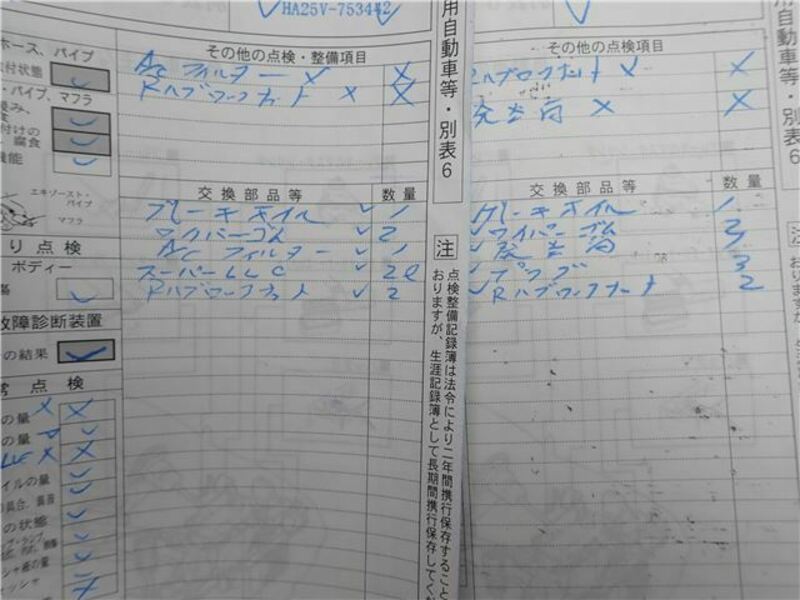 HA25V-753442
ホース、パイプ
付状態
・パイプ、マフラ
付けの
腐食
機能
エキゾースト・
パイプ
マフラ
り点検
ボディー
故障診断装置
の結果
常点検
の量 X X
の量
X X
イルの量
の具合、
の状態
その他の点検・整備項目
ACフィルター X X
Rハブロックナット X X
交換部品等 数量
ブレーキオイル ✓ 1
ワイパーゴム ✓ 2
ACフィルター ✓ 1
スーパーLLC ✓ 2ℓ
Rハブロックナット ✓ 2
用自動車等・別表6
注
点検整備記録簿は法令により二年間携行保存すること
おりますが、生涯記録簿として長期間携行保存してく
その他の点検・整備項目
Rハブロックナット X X
発炎筒 X X
交換部品等 数量
ブレーキオイル 1
✓ワイパーゴム 3
✓発炎筒
✓プラグ 3
✓Rハブロックナット 2
用自動車等・別表6